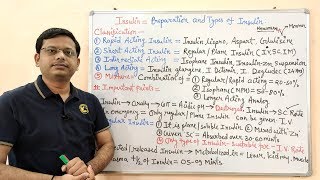 Insulin = Preparation and Types of Insulin
Classification
① Rapid Acting Insulin = Insulin Lispro, Aspart, Glulisine
② Short Acting Insulin = Regular/Plain Insulin
③ Intermediate Acting = Isophane Insulin, Insulin Zn. Suspension
Long Acting = Insulin glargine, I. Detimir, I. Degludec
⑤ Mixtures = Combination of = ① Regular/Rapid acting = 20-50%
② Isophane (NPH) = 50-80%
③ Longer Acting Analog
Important Points =
Insulin → Orally → GIT = Acidic pH → Destroyed Insulin → SC Route
emergency = Only regular/Plain Insulin can be given I.V.
Regular Insulin = ① It is plain/soluble Insulin ② Mixed with Zn
given SC = Absorbed over 30-60 mints
Only type of Insulin = Suitable for I.V
released Insulin → Metabolized in = Liver, kidney, muscle
t½ of Insulin = 05-09 Mints